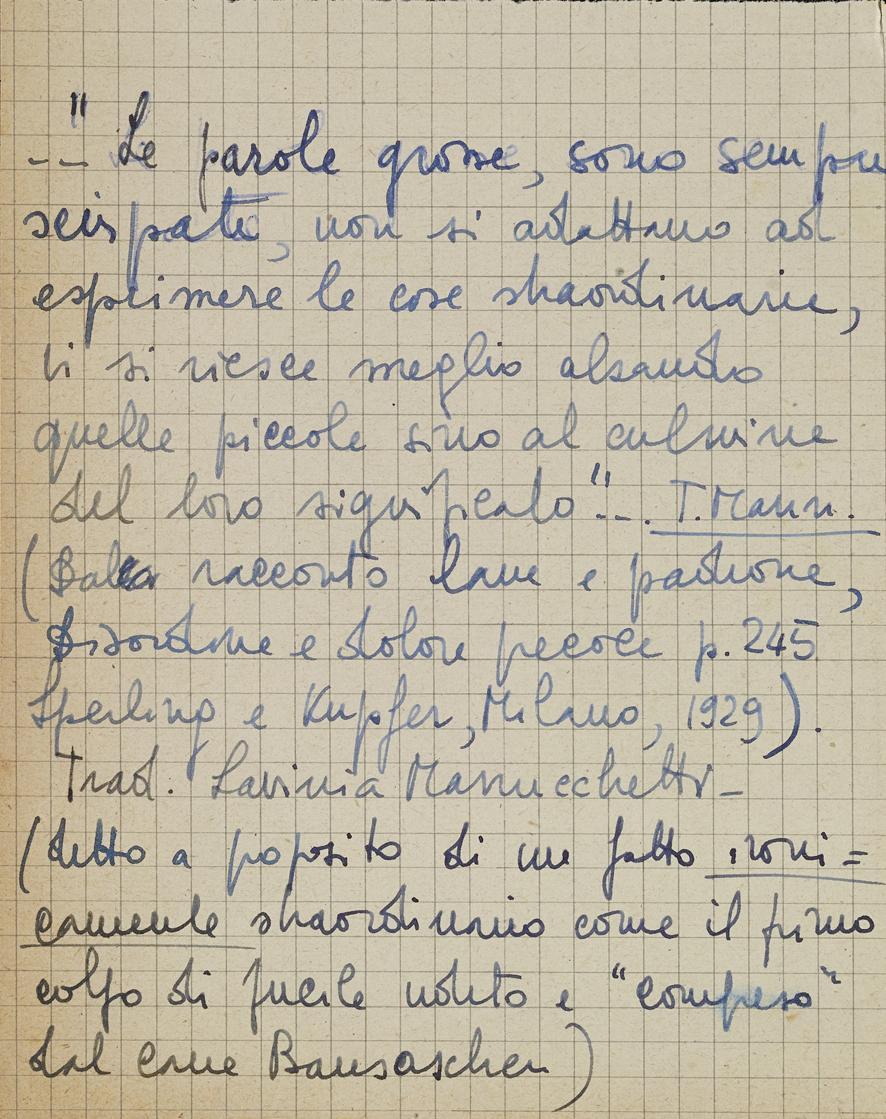 "-- Le parole grosse, sono sempre
sciupate, non si adattano ad
esprimere le cose straordinarie,
vi si riesce meglio alzando
quelle piccole sino al culmine
del loro significato"--. T. Mann.
(Dal racconto Cane e padrone,
Disordine e dolore precoce p. 245
Sperling e Kupfer, Milano, 1929).
Trad. Lavinia Mazzucchetti-
(detto a proposito di un fatto ironi=
camente straordinario come il primo
colpo di fucile udito e "compreso"
dal cane Bauschan)